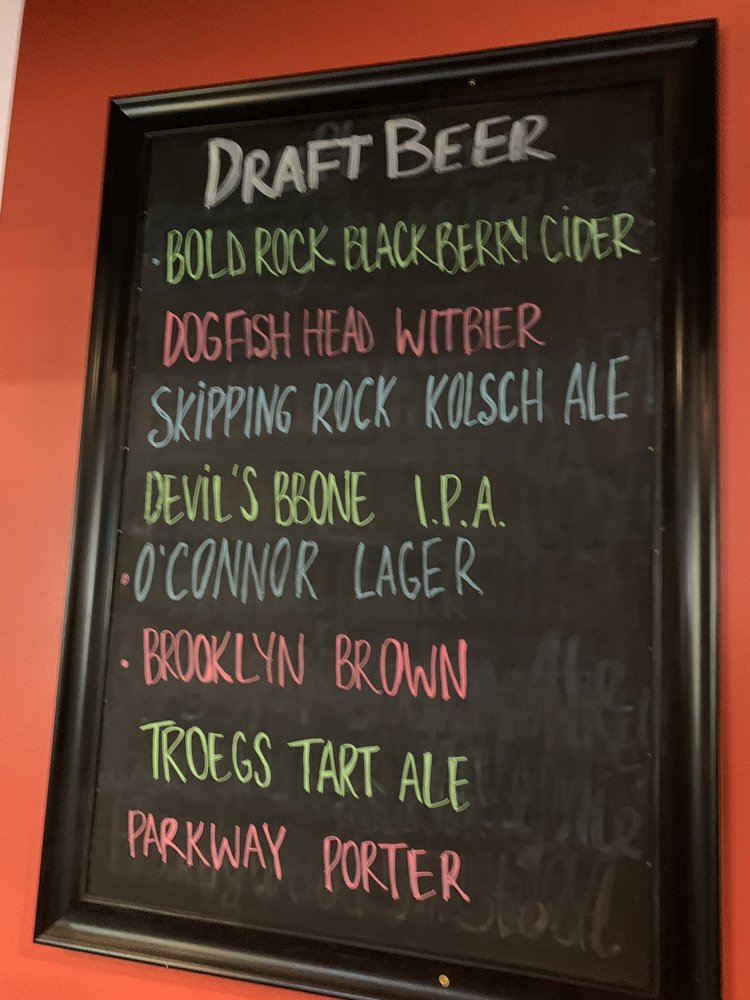 DRAFT BEER
BOLD ROCK BLACKBERRY CIDER
DOGFISH HEAD WITBIER
SKIPPING ROCK KOLSCH ALE
DEVIL'S BBONE I.P.A.
O'CONNOR LAGER
BROOKLYN BROWN
TROEGS TART ALE
PARKWAY PORTER